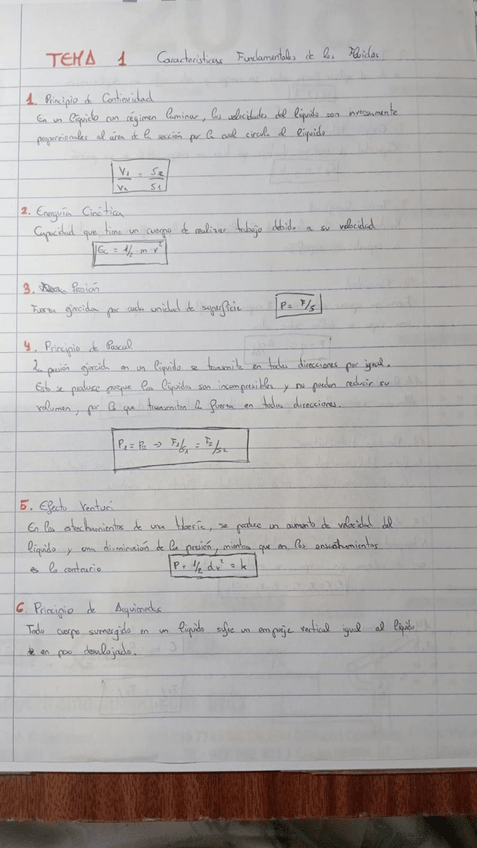 TEMA 1 Características Fundamentales de los Fluidos
1. Principio de Continuidad
En un líquido con régimen laminar, las velocidades del líquido son inversamente
proporcionales al área de la sección por la cual circula el líquido
V1/V2 = S2/S1
2. Energía Cinética
Capacidad que tiene un cuerpo de realizar trabajo debido a su velocidad
Ec = 1/2 m v²
3. Presión
Fuerza ejercida por cada unidad de superficie P = F/S
4. Principio de Pascal
La presión ejercida en un líquido se transmite en todas direcciones por igual.
Esto se produce porque los líquidos son incompresibles y no pueden reducir su
volumen, por lo que transmiten la fuerza en todas direcciones.
P1 = P2 => F1/S1 = F2/S2
5. Efecto Venturi
En los estrechamientos de una tubería, se produce un aumento de velocidad del
líquido y una disminución de la presión, mientras que en los ensanchamientos
es lo contrario P + 1/2 d v² = k
6 Principio de Arquímedes
Todo cuerpo sumergido en un líquido sufre un empuje vertical igual al líquido
en peso desalojado.